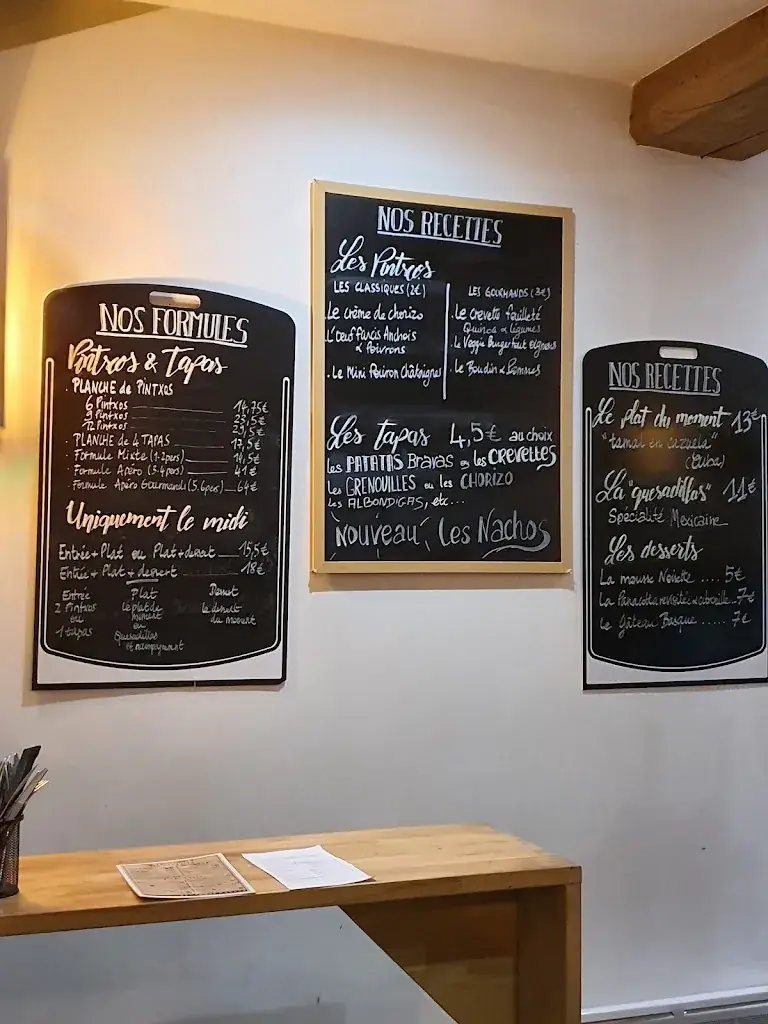 NOS FORMULES
Pintxos & Tapas
. PLANCHE de PINTXOS
6 Pintxos 14,75€
9 Pintxos 23,5€
12 Pintxos
. PLANCHE de 4 TAPAS 17,5€
. Formule Mixte (1-2pers)
. Formule Apéro (3-4pers) 41€
. Formule Apéro Gourmand (5.6pers) 64€
Uniquement le midi
Entrée + Plat ou Plat + dessert 15,5€
Entrée + Plat + dessert 18€
Entrée
2 Pintxos
ou
1 tapas
Plat
le plat du
moment
ou
Quesadillas
Dessert
le dessert
du moment
NOS RECETTES
Les Pintxos
LES CLASSIQUES (2€)
Le crème de chorizo
L'oeuf farcis Anchois
& Poivrons
. Le Mini Poivron Châtaignes
LES GOURMANDS (3€)
. Le crevette feuilleté
Quinoa & légumes
. Le Veggie Burger
. Le Boudin & Pommes
Les tapas 4,5€ au choix
Les PATATAS Bravas ou les CREVETTES
Les GRENOUILLES ou les CHORIZO
Les ALBONDIGAS, etc...
Nouveau, Les Nachos
NOS RECETTES
Le plat du moment 13€
"tamal en cazuela"
(Cuba)
La "quesadillas" 11€
Spécialité Mexicaine
Les desserts
La mousse Noisette .... 5€
La Panacotta revisitée 7€
Le Gâteau Basque ..... 7€